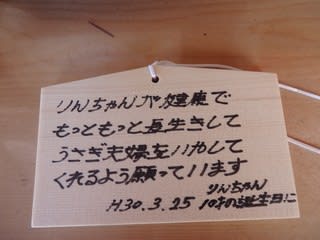 りんちゃんが健康で
もっともっと長生きして
うさぎ夫婦をいやして
くれるよう願っています
りんちゃん
H30.3.25 10才の誕生日に